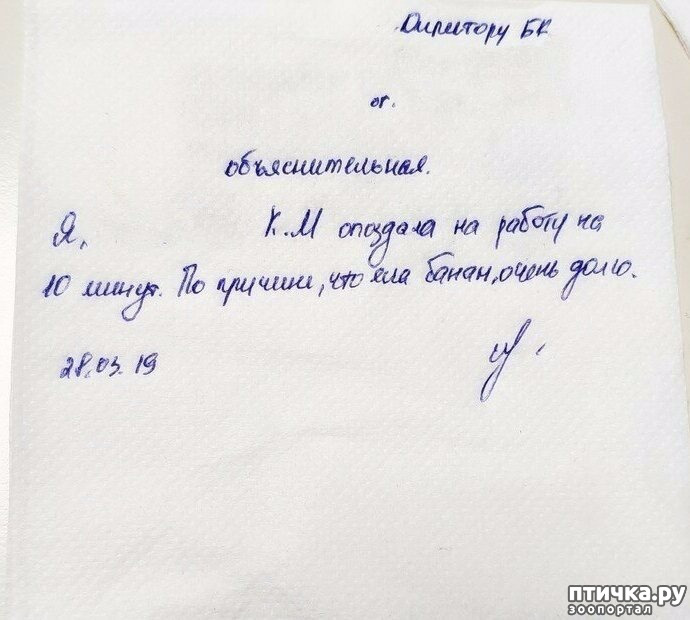 Директору БК
от.
объяснительная.
Я, К.М опоздала на работу на
10 минут. По причине, что ела банан, очень долго.
28.03.19
птичка.ру
зоопортал